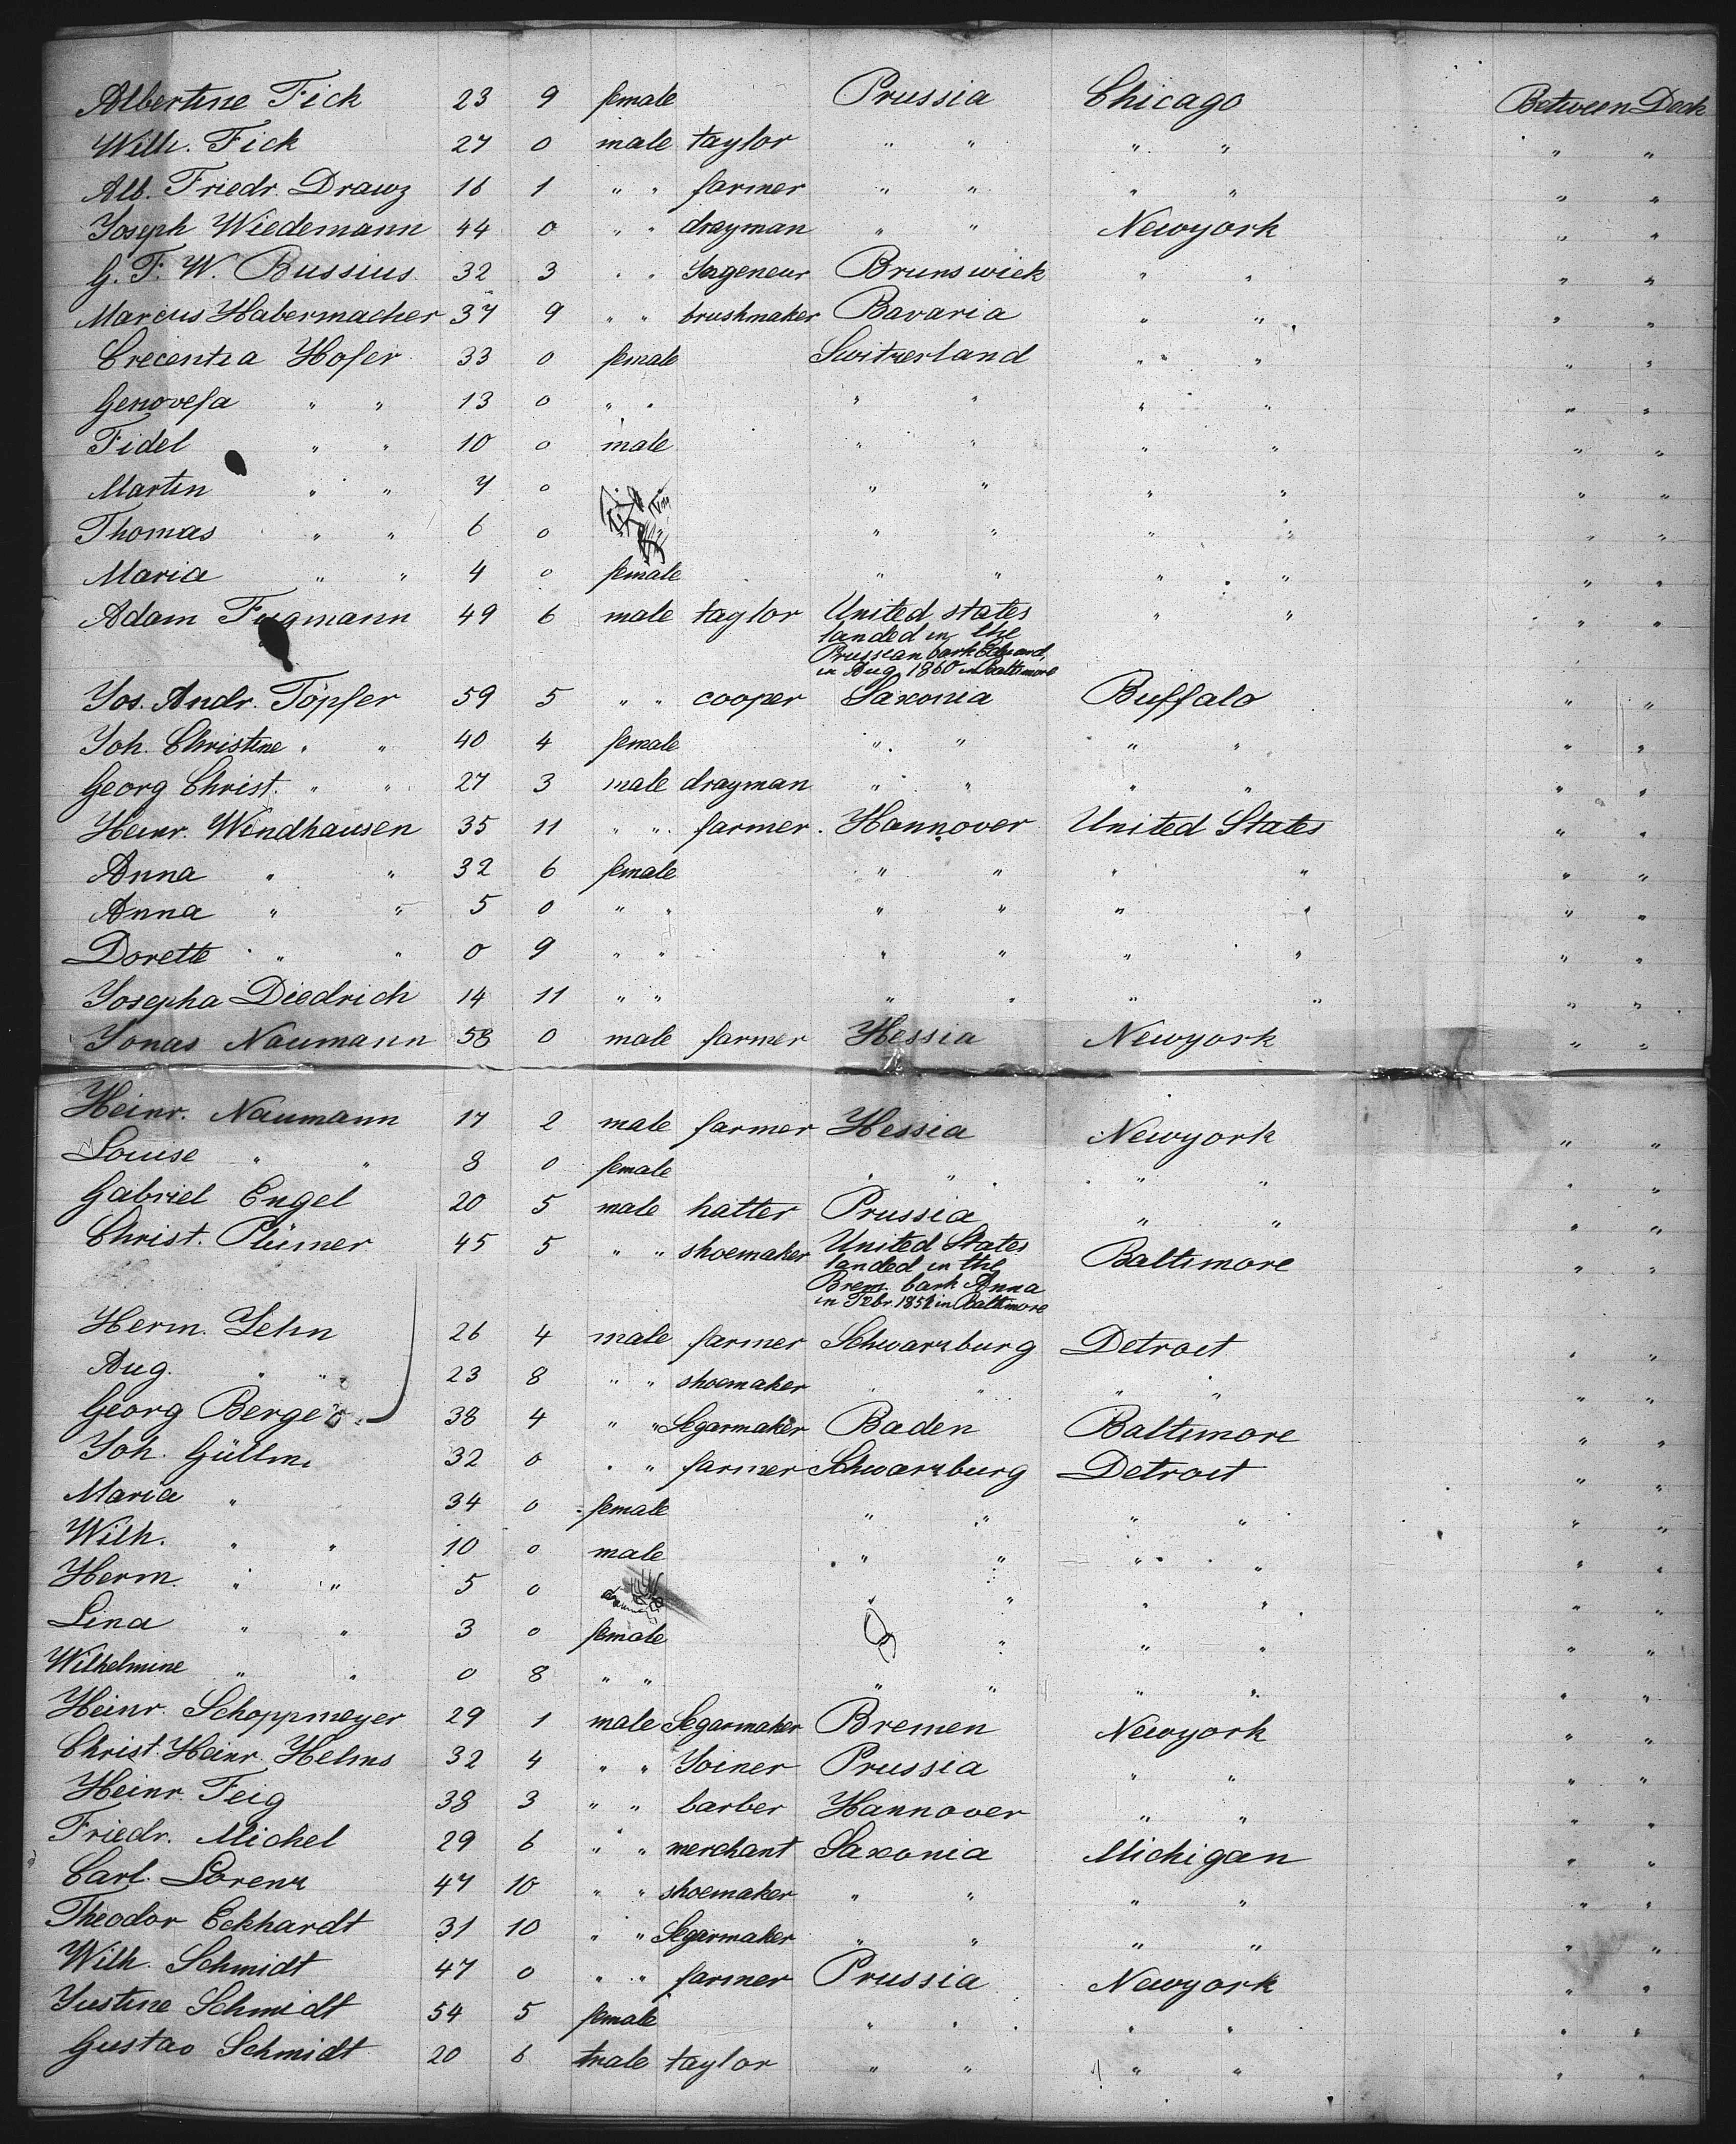 Albertine Fick 23 9 female Prussia Chicago Between Deck
Wilh. Fick 27 0 male taylor " " " " " "
Alb. Friedr. Drawz 16 1 " " farmer " " " " " "
Joseph Wiedemann 44 0 " " drayman " " Newyork " "
G. F. W. Bussius 32 3 " " Ingeneur Brunswick " " " "
Marcus Habermacher 37 9 " " brushmaker Bavaria " " " "
Crecentia Hofer 33 0 female Switzerland " " " "
Genovefa " " 13 0 " " " " " " " "
Fidel " " 10 0 male " " " " " "
Martin " " 7 0 " " " " " "
Thomas " " 6 0 " " " " " "
Maria " " 4 0 female " " " " " "
Adam Fugmann 49 6 male taylor United states " " " "
landed in the
Prussean bark Eduard
in Aug 1860 in Baltimore
Jos. Andr. Töpfer 59 5 " " cooper Saxonia Buffalo " "
Joh. Christine " " 40 4 female " " " " " "
Georg Christ. " " 27 3 male drayman " " " " " "
Heinr. Windhausen 35 11 " " farmer Hannover United States " "
Anna " " 32 6 female " " " " " "
Anna " " 5 0 " " " " " " " "
Dorette " " 0 9 " " " " " " " "
Josepha Diedrich 14 11 " " " " " " " "
Jonas Naumann 58 0 male farmer Hessia Newyork " "
Heinr. Naumann 17 2 male farmer Hessia Newyork " "
Louise " " 8 0 female " " " " " "
Gabriel Engel 20 5 male hatter Prussia " " " "
Christ. Plümer 45 5 " " shoemaker United States Baltimore " "
landed in the
Brem. bark Anna
in Febr. in Baltimore
Herm. Jehn 26 4 male farmer Schwarzburg Detroit " "
Aug. " " 23 8 " " shoemaker " " " " " "
Georg Berger 38 4 " " Segarmaker Baden Baltimore " "
Joh. Güllm. 32 0 " " farmer Schwarzburg Detroit " "
Maria " 34 0 female " " " " " "
Wilh. " " 10 0 male " " " " " "
Herm. " " 5 0 " " " " " "
Lina " " 3 0 female " " " " "
Wilhelmine " " 0 8 " " " " " " " "
Heinr. Schoppmeyer 29 1 male Segarmaker Bremen Newyork " "
Christ. Heinr. Helms 32 4 " " Joiner Prussia " " " "
Heinr. Feig 38 3 " " barber Hannover " " " "
Friedr. Michel 29 6 " " merchant Saxonia Michigan " "
Carl. Lorenz 47 10 " " shoemaker " " " " " "
Theodor Eckhardt 31 10 " " Segarmaker " " " " " "
Wilh. Schmidt 47 0 " " farmer Prussia Newyork " "
Justine Schmidt 54 5 female " " " " " "
Gustav Schmidt 20 6 male taylor " " " " " "